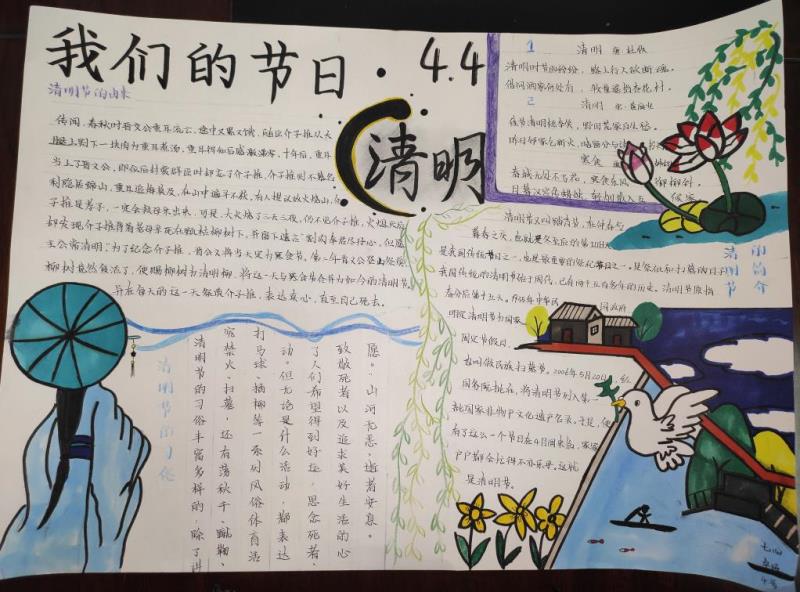 我们的节日·4.4
清明
清明节的由来
传闻,春秋时晋文公重耳流亡,途中又累又饿,随臣介子推从大
腿上割下一块肉为重耳煮汤,重耳
十年后,重耳
当上了晋文公,即位后封赏群臣时却忘了介子推,介子推则不慕名
利隐居绵山,重耳追悔莫及,在山中遍寻不获,有人提议放火烧山,介
子推是孝子,一定会救母亲出来,可是,大火烧了三天三夜,仍不见介子推,火熄灭后
却发现介子推背着母亲死在
柳树下,并留下遗言“割肉奉君尽丹心,但愿
主公常清明”为了纪念介子推,晋文公将当天定为寒食节。第二年晋文公登山祭奠,
柳树竟然复活了,便赐柳树为清明柳,将这一天与寒食节合并为如今的清明节,
并在每年的这一天祭奠介子推,表达衷心,直至自己死去。
1 清明 唐·杜牧
清明时节雨纷纷,路上行人欲断魂。
借问酒家何处有,牧童遥指杏花村。
2 清明 宋·黄庭坚
佳节清明桃李笑,野田荒冢自生愁。
昨日邻家乞新火,晓窗分与读书
寒食
春城无处不飞花,寒食东风
柳斜。
日暮汉宫传蜡烛,轻烟散入五侯家
清明节的简介
清明节又叫踏青节,在仲春与
暮春之交,也就是冬至后的第108天。
是我国传统节日之一,也是最重要的祭祀节日之一。是祭祖和扫墓的日子。
我国传统的清明节始于周代,已有两千五百多年的历史。清明节原指
春分后第十五天,1935年中华民国政府
明定清明节为国家
国定节假日,
也叫做民族扫墓节。2006年5月20日,经
国务院批准,将清明节列入第一
批国家非物质文化遗产名录。于是,便
有了这么一个节日在4月同来临,家家
户户都会忙得不亦乐乎。这就
是清明节。
清明节的习俗
清明节的习俗丰富多样的,除了讲
究禁火、扫墓,还有荡秋千、蹴鞠、
打马球、插柳等一系列风俗体育活
动。但无论是什么活动,都表达
了人们希望得到好运,思念死者,
致敬死者以及追求美好生活的心
愿。山河无恙,逝者安息。